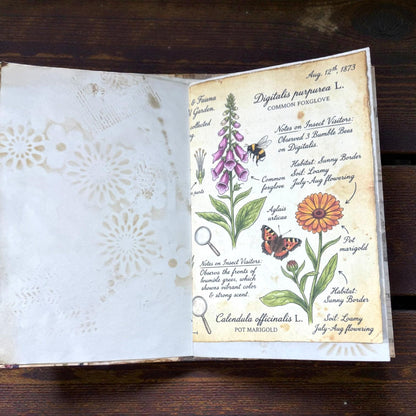 Aug. 12th, 1873
& Fauna
Garden.
collected
Digitalis purpurea L.
COMMON FOXGLOVE
Notes on Insect Visitors:
Observed 3 Bumble Bees
on Digitalis.
Habitat: Sunny Border
Soil: Loamy
July-Aug flowering
Common
foxglove
parts
Aglais
urticae
Pot
marigold
Notes on Insect Visitors:
Observe the fronts of
bumble greer, which
shows vibrant color
& strong scent.
Habitat:
Sunny Border
Soil: Loamy
July-Aug flowering
Calendula officinalis L.
POT MARIGOLD